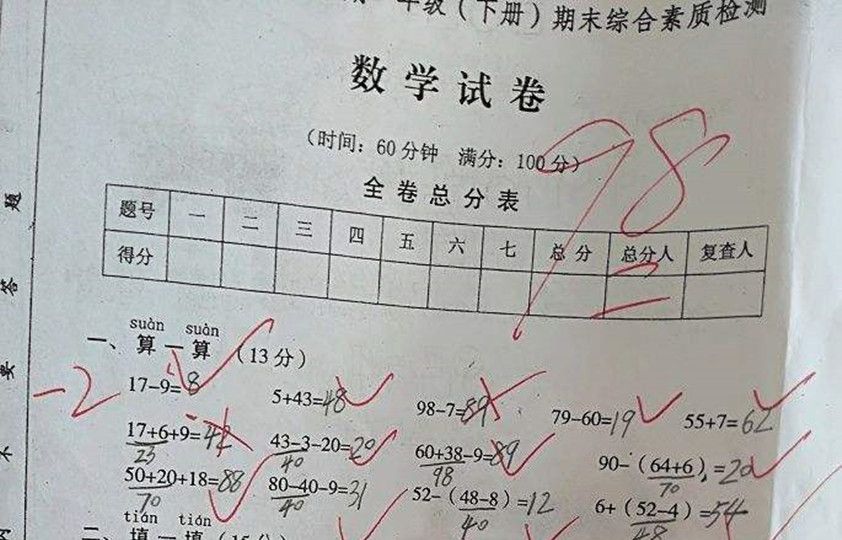 年级（下册）期末综合素质检测
数学试卷
（时间：60分钟 满分：100分）
98
全卷总分表
题号 一 二 三 四 五 六 七 总分 总分人 复查人
得分
suàn suàn
一、算一算（13分）
-2
17-9=8 5+43=48 98-7=89 79-60=19 55+7=62
17+6+9=42 43-3-20=20 60+38-9=89 90-（64+6）=20
23 40 98 70
50+20+18=88 80-40-9=31 52-（48-8）=12 6+（52-4）=54
70 40 40 48
tián tián
二、填一填（15分）
题
答
要